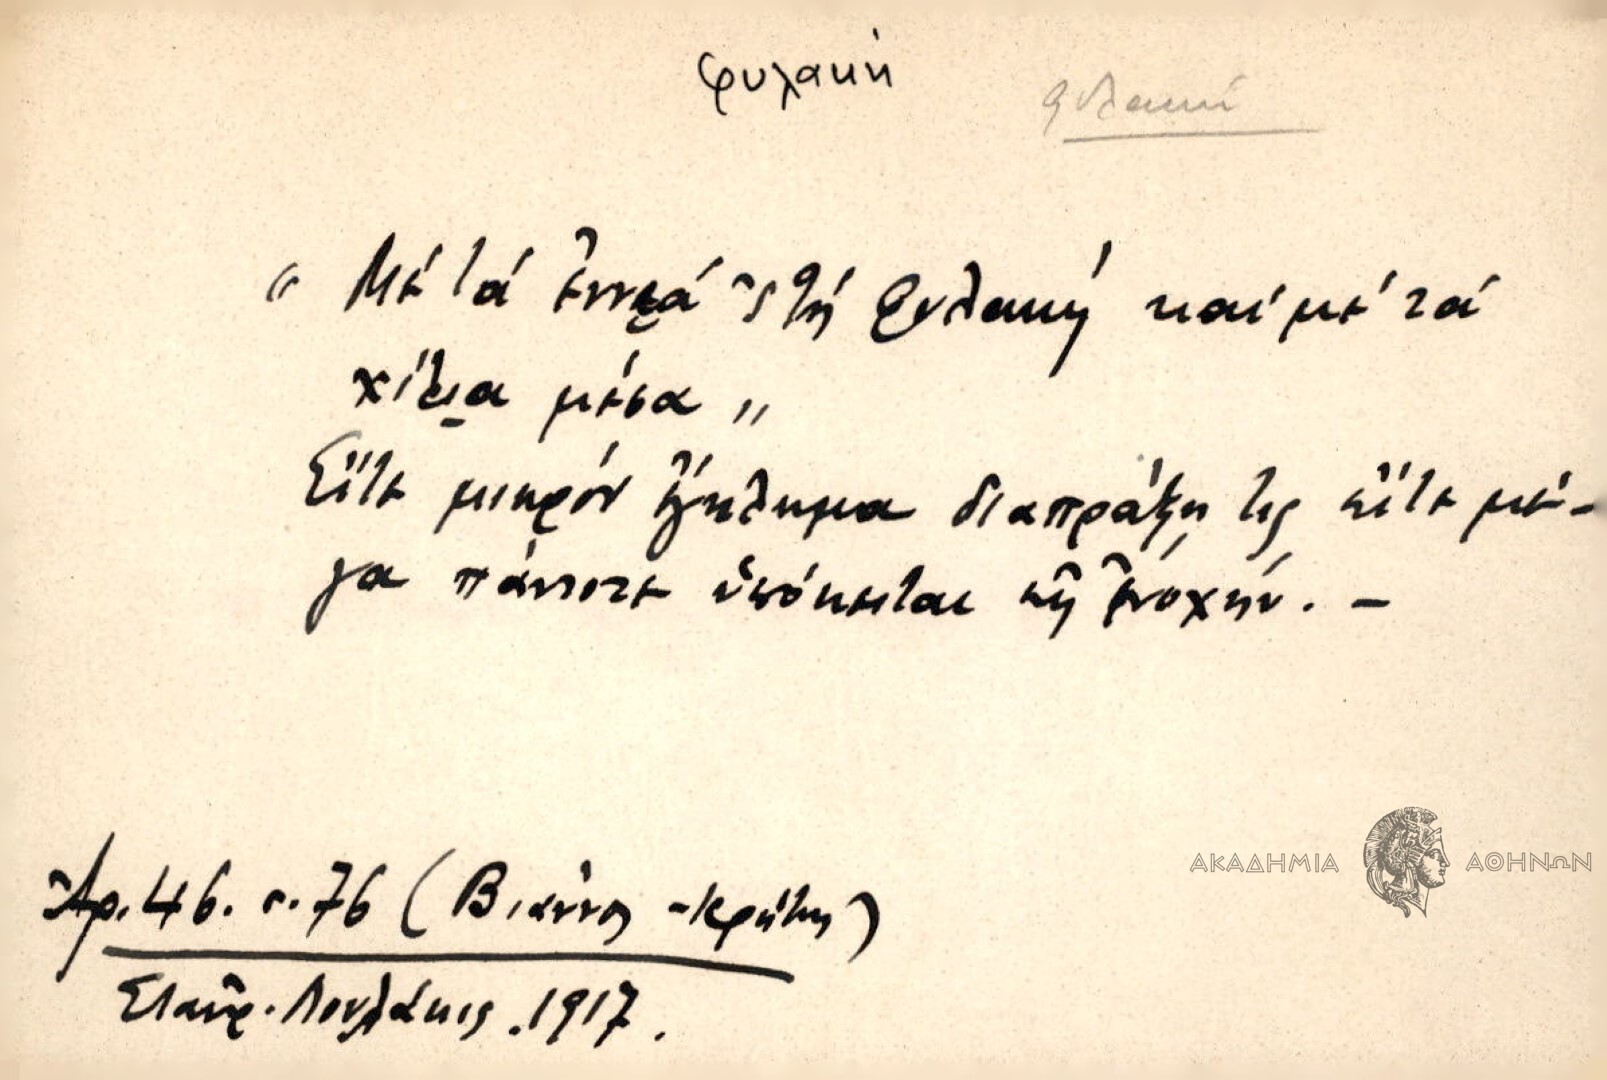 φυλακή
φυλακή
“ Μέ τά ἐννιά ᾽ς τή φυλακή καί μέ τά
χίλια μέσα „
Εἴτε μικρόν ἔγκλημα διαπράξῃ τις εἴτε μέ-
γα πάντοτε ὑπόκειται εἰς ἐνοχήν. –
Ἀρ. 46. σ. 76 (Βιάννος - Κρήτης)
Σταῦρ. Λουλάκις. 1917.
ΑΚΑΔΗΜΙΑ ΑΘΗΝΩΝ